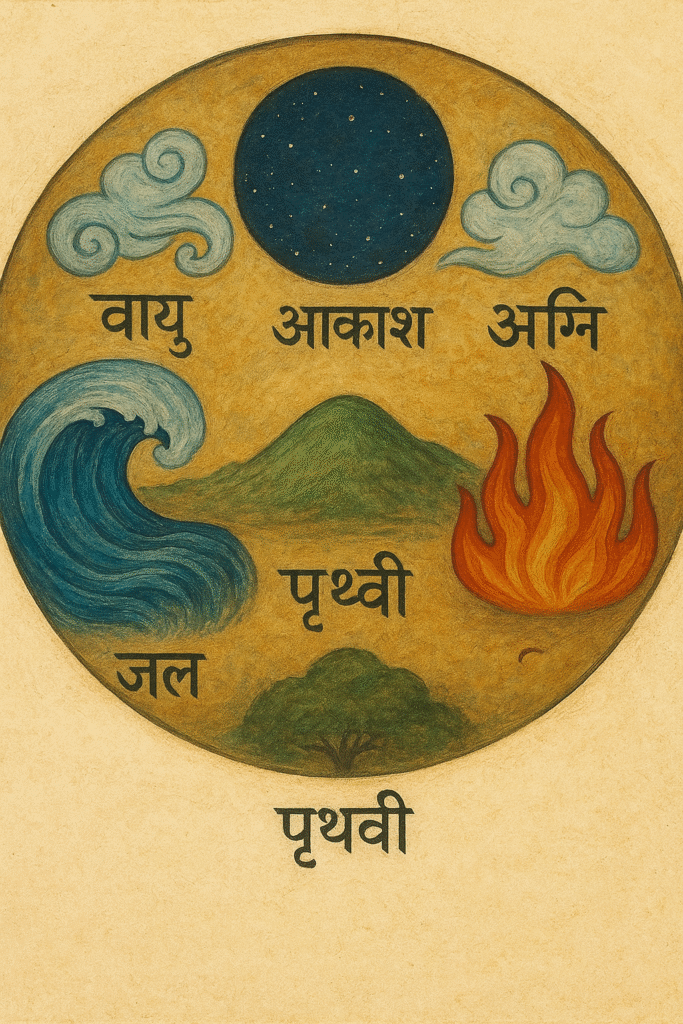 वायु आकाश अग्नि
पृथ्वी
जल
पृथवी